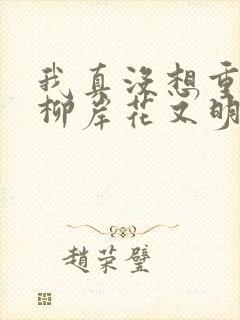 我真没想重
柳岸花又明
趙荣璧